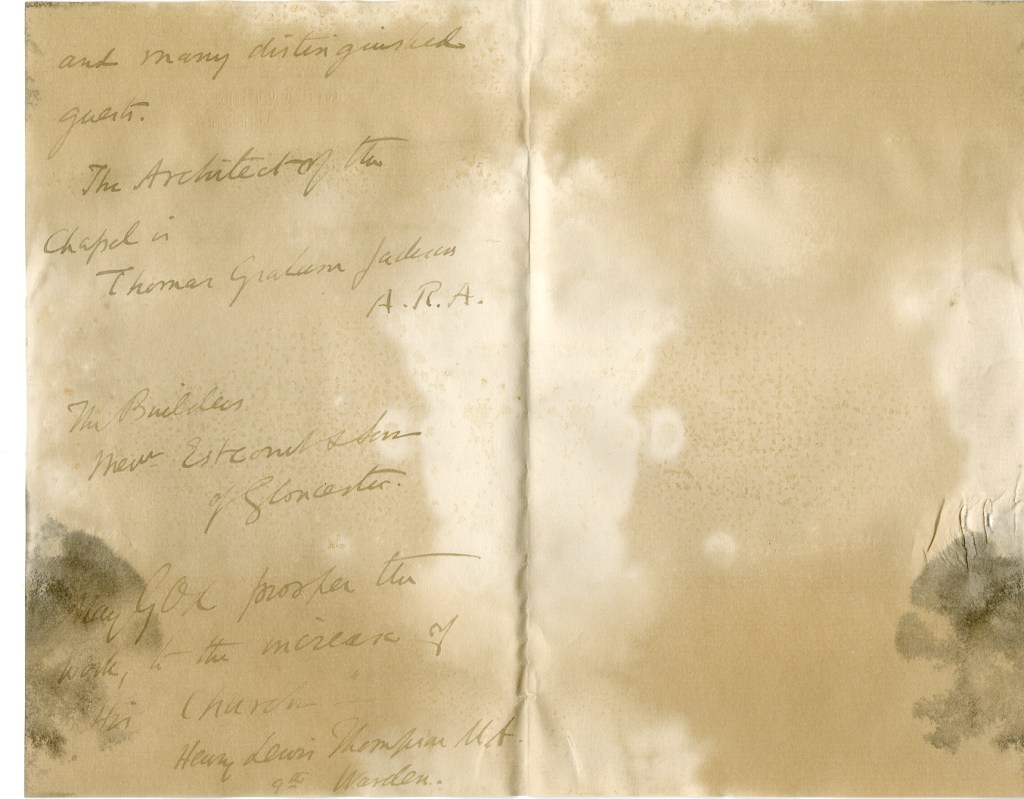 and many distinguished
guests.
The Architect of the
Chapel is
Thomas Graham Jackson
A.R.A.
The Builders
Messrs Estcourt & Son
of Gloucester.
May GOD prosper the
work, to the increase of
His Church
Henry Lewis Thompson M.A.
9th Warden.